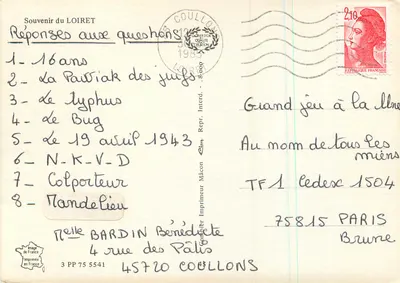 Souvenir du LOIRET
Réponses aux questions
1- 16 ans
2- La Patriak des juifs
3- Le typhus
4- Le Bug
5- Le 19 avril 1943
6- N-K-V-D
7- Colporteur
8- Mandelieu
Melle BARDIN Bénédicte
4 rue des Pâtis
45720 COULLONS
3 PP 75 5541
Imprimeur Mâcon
Repr. Intent.
COULLONS
2,10
Grand jeu à la Une
Au nom de tous les
miens
TF1 Cedex 1504
75815 PARIS
Brune